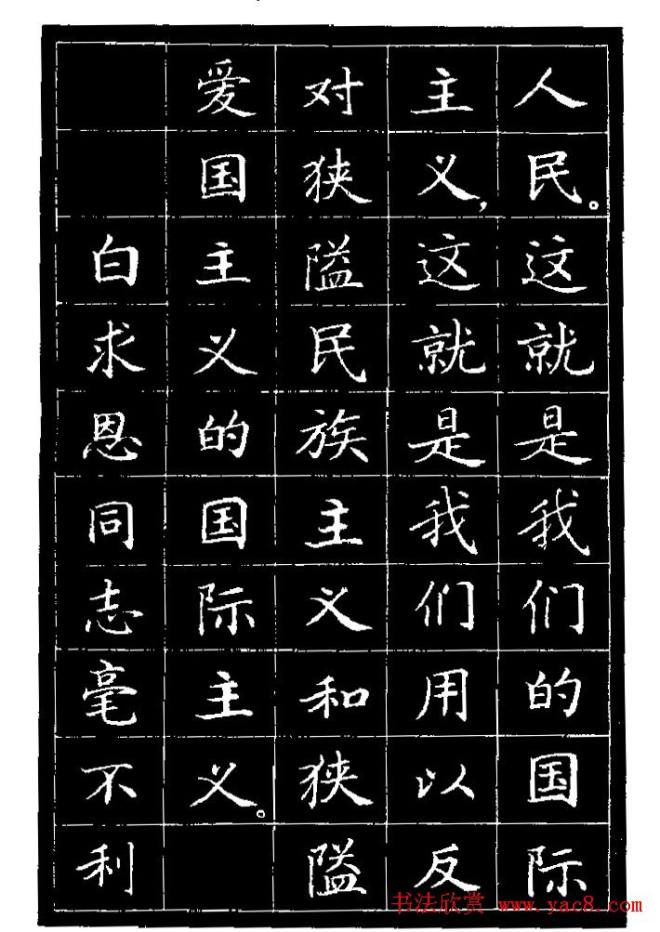 人民。这就是我们的国际
主义，这就是我们用以反
对狭隘民族主义和狭隘
爱国主义的国际主义。
白求恩同志毫不利
书法欣赏 www.yac8.com